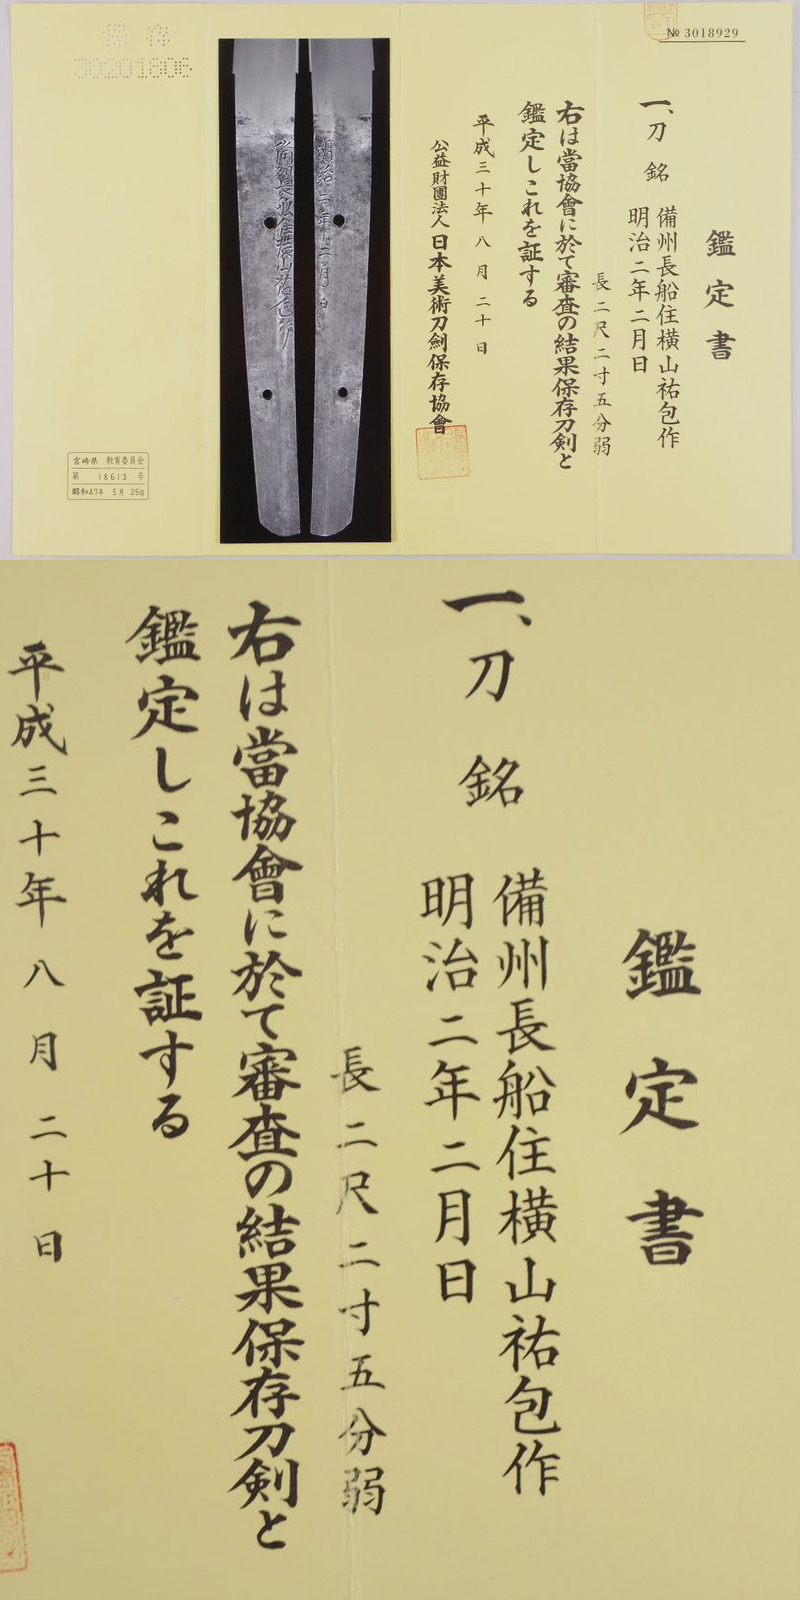 № 3018929
鑑定書
一、刀 銘 備州長船住横山祐包作
明治二年二月日
長二尺二寸五分弱
右は當協會に於て審査の結果保存刀剣と
鑑定しこれを証する
平成三十年八月二十日
公益財團法人日本美術刀劍保存協會
明治二年二月日
備州長船住横山祐包作
保存
30201806
宮崎県 教育委員会
第 18613 号
昭和47年 5月 25日
鑑定書
一、刀 銘 備州長船住横山祐包作
明治二年二月日
長二尺二寸五分弱
右は當協會に於て審査の結果保存刀剣と
鑑定しこれを証する
平成三十年八月二十日